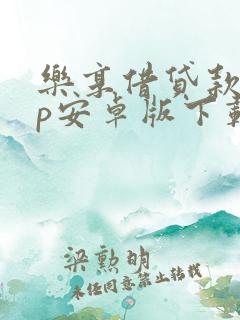 樂享借貸款
p安卓版下載
梁勲明
未经同意禁止转载